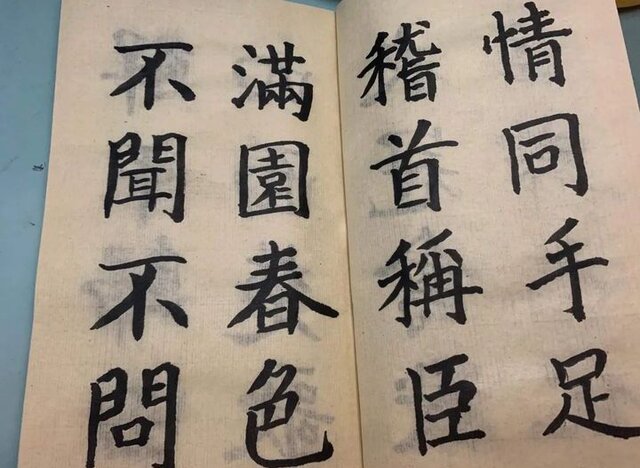 情同手足
稽首稱臣
滿園春色
不聞不問